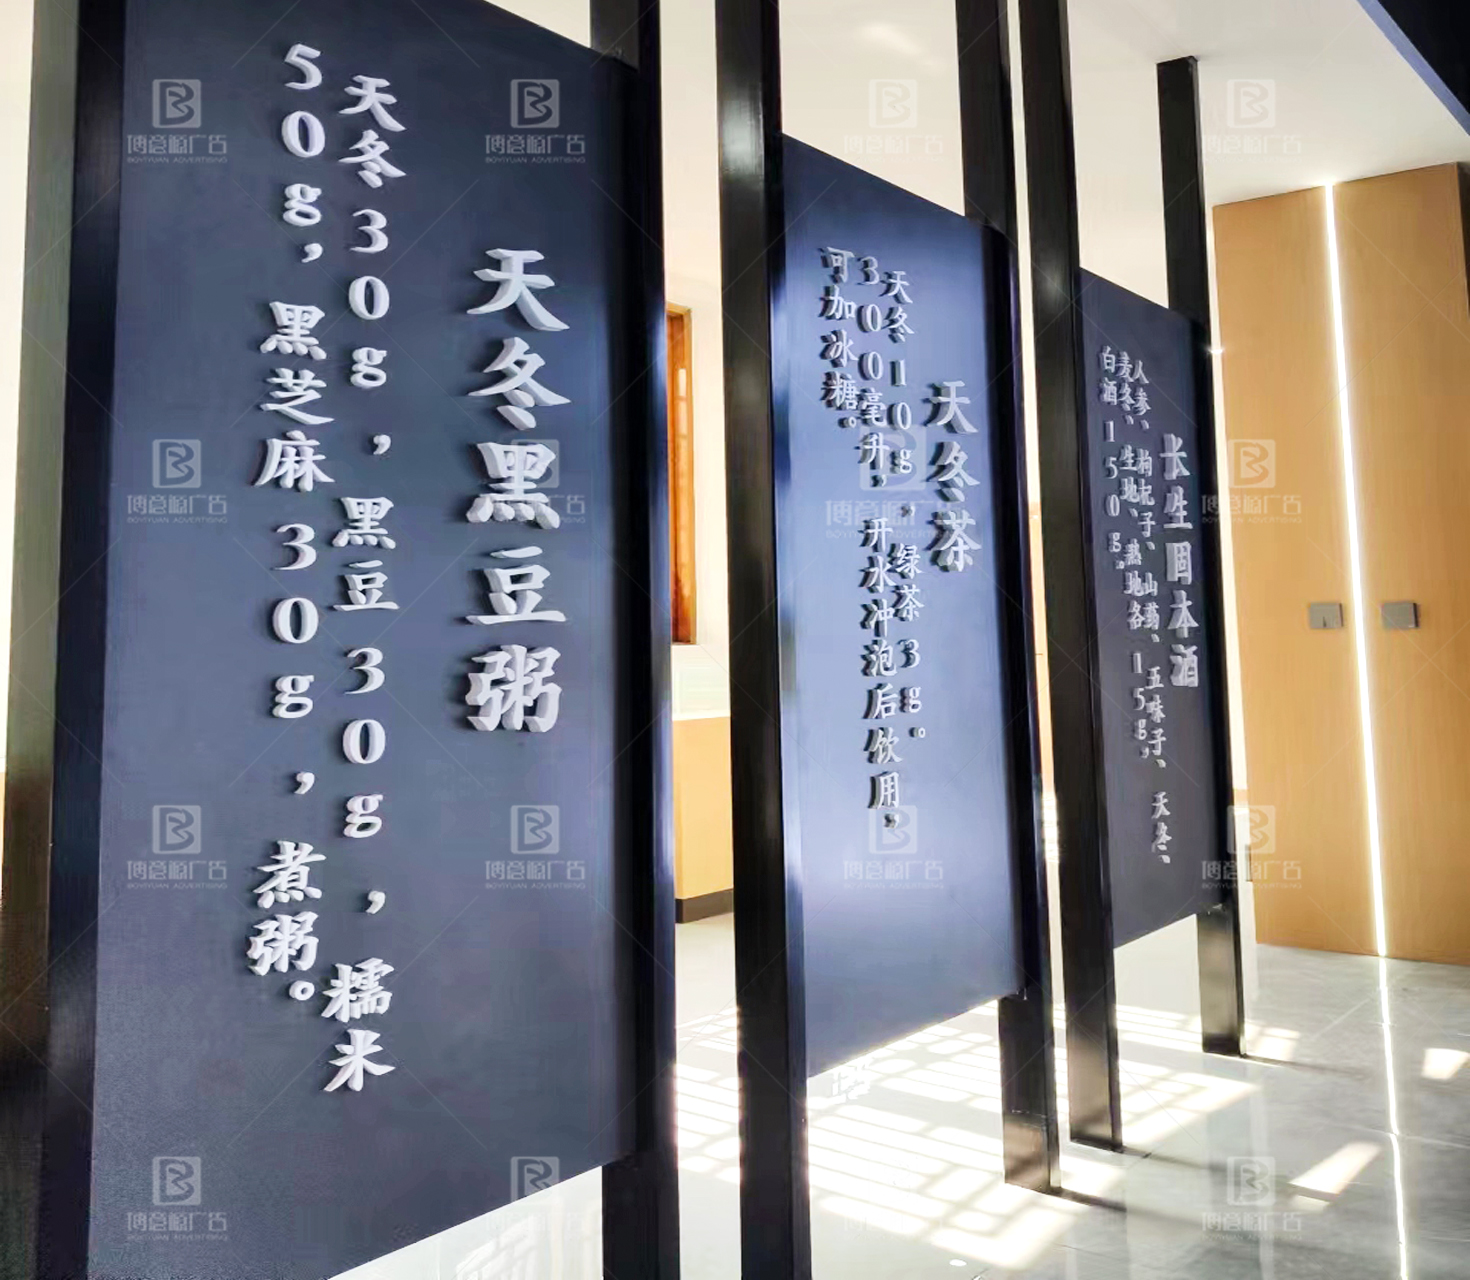 天冬黑豆粥
天冬30g，黑豆30g，糯米
50g，黑芝麻30g，煮粥。
天冬茶
天冬10g，绿茶3g。
300毫升，开水冲泡后饮用，
可加冰糖。
长生固本酒
人参、枸杞子、山药、五味子、天冬、
麦冬、生地、熟地各15g，
白酒150g。
博意源广告
BOYIYUAN ADVERTISING